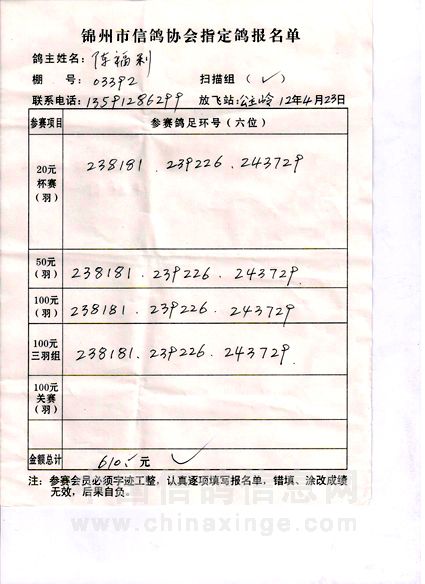 锦州市信鸽协会指定鸽报名单
鸽主姓名: 陈福利
棚 号: 03392 扫描组 (✓)
联系电话: 13591286299 放飞站: 公主岭 12年4月23日
参赛项目 参赛鸽足环号 (六位)
20元
杯赛
(羽)
238181 . 239226 . 243729
50元
(羽)
238181 . 239226 . 243729
100元
(羽)
238181 . 239226 . 243729
100元
三羽组
238181 . 239226 . 243729
100元
关赛
(羽)
金额总计 610.- 元 ✓
注: 参赛会员必须字迹工整, 认真逐项填写报名单, 错填、涂改成绩
无效, 后果自负。
中国信鸽信息网
www.chinaxinge.com